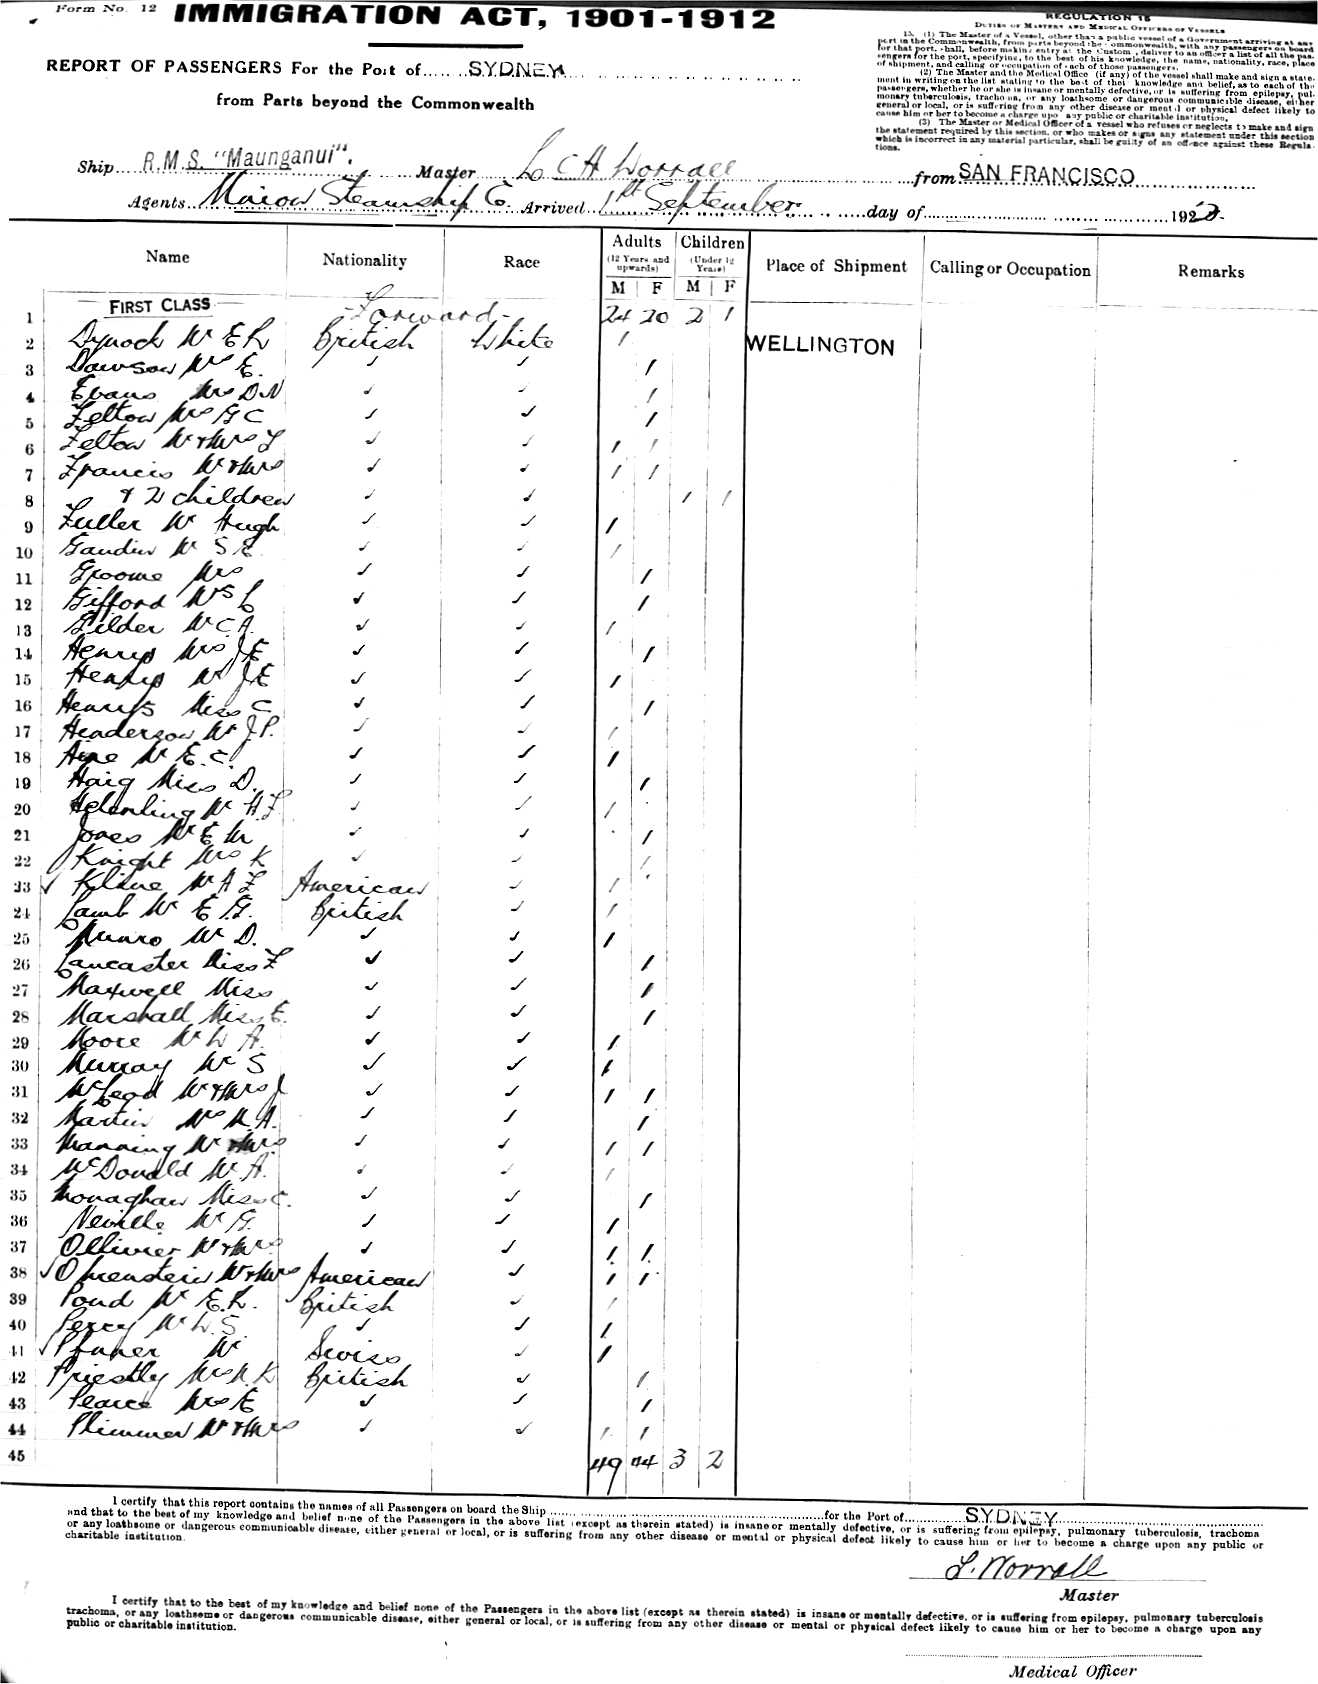 Form No. 12
IMMIGRATION ACT, 1901-1912
REPORT OF PASSENGERS For the Port of SYDNEY
from Parts beyond the Commonwealth
REGULATION 15
DUTIES OF MASTERS AND MEDICAL OFFICERS OF VESSELS
15. (1) The Master of a Vessel, other than a public vessel of a Government arriving at any
port in the Commonwealth, from parts beyond the Commonwealth, with any passengers on board
for that port, shall, before making entry at the Customs, deliver to an officer a list of all the pas-
sengers for the port, specifying, to the best of his knowledge, the name, nationality, race, place
of shipment, and calling or occupation of each of those passengers.
(2) The Master and the Medical Office (if any) of the vessel shall make and sign a state-
ment in writing on the list stating to the best of their knowledge and belief, as to each of the
passengers, whether he or she is insane or mentally defective, or is suffering from epilepsy, pul-
monary tuberculosis, trachoma, or any loathsome or dangerous communicable disease, either
general or local, or is suffering from any other disease or mental or physical defect likely to
cause him or her to become a charge upon any public or charitable institution.
(3) The Master or Medical Officer of a vessel who refuses or neglects to make and sign
the statement required by this section, or who makes or signs any statement under this section
which is incorrect in any material particular, shall be guilty of an offence against these Regula-
tions.
Ship R.M.S. "Maunganui". Master L C H Worrall from SAN FRANCISCO
Agents Union Steamship Co. Arrived 1st September day of 192
Name Nationality Race Adults (12 Years and upwards) M F Children (Under 12 Years) M F Place of Shipment Calling or Occupation Remarks
1 FIRST CLASS Forward 24 20 2 1
2 Dymock Mr E R British White 1 WELLINGTON
3 Dawson Mrs E. ✓ ✓ 1
4 Evans Mrs D N ✓ ✓ 1
5 Felton Mrs G C ✓ ✓ 1
6 Felton Mr & Mrs F ✓ ✓ 1 1
7 Francis Mr & Mrs ✓ ✓ 1 1
8 & 2 children ✓ ✓ 1 1
9 Fuller Mr Hugh ✓ ✓ 1
10 Gaudin Mr S E. ✓ ✓ 1
11 Groome Mrs ✓ ✓ 1
12 Gifford Mrs L ✓ ✓ 1
13 Gilder Mr C A. ✓ ✓ 1
14 Henrys Mrs J E ✓ ✓ 1
15 Henrys Mr J E ✓ ✓ 1
16 Henrys Miss C ✓ ✓ 1
17 Henderson Mr J. P. ✓ ✓ 1
18 Mr E. C. ✓ ✓ 1
19 Haig Miss D. ✓ ✓ 1
20 Mr H. F ✓ ✓ 1
21 Jones E M ✓ ✓ 1
22 Knight Mrs K ✓ ✓ 1
23 ✓ Kline Mr A F American ✓ 1
24 Lamb Mr E G. British ✓ 1
25 Munro Mr D. ✓ ✓ 1
26 Lancaster Miss F ✓ ✓ 1
27 Maxwell Miss ✓ ✓ 1
28 Marshall Miss E. ✓ ✓ 1
29 Moore Mr L A. ✓ ✓ 1
30 Murray Mr S ✓ ✓ 1
31 McLeod Mr & Mrs J ✓ ✓ 1 1
32 Martin Mrs N. A. ✓ ✓ 1
33 Manning Mr & Mrs ✓ ✓ 1 1
34 McDonald Mr A. ✓ ✓ 1
35 Monaghan Miss C. ✓ ✓ 1
36 Neville Mr G. ✓ ✓ 1
37 Ollivier Mr & Mrs ✓ ✓ 1 1
38 ✓ Mr & Mrs American ✓ 1 1
39 Pond Mr E. R. British ✓ 1
40 Percy Mr L. S. ✓ ✓ 1
41 ✓ Mr Swiss ✓ 1
42 Priestly Mrs N K British ✓ 1
43 Pearce Mrs E ✓ ✓ 1
44 Plimmer Mr & Mrs ✓ ✓ 1 1
45 49 44 3 2
I certify that this report contains the names of all Passengers on board the Ship for the Port of SYDNEY
and that to the best of my knowledge and belief none of the Passengers in the above list (except as therein stated) is insane or mentally defective, or is suffering from epilepsy, pulmonary tuberculosis, trachoma
or any loathsome or dangerous communicable disease, either general or local, or is suffering from any other disease or mental or physical defect likely to cause him or her to become a charge upon any public or
charitable institution.
L. Worrall
Master
I certify that to the best of my knowledge and belief none of the Passengers in the above list (except as therein stated) is insane or mentally defective, or is suffering from epilepsy, pulmonary tuberculosis
trachoma, or any loathsome or dangerous communicable disease, either general or local, or is suffering from any other disease or mental or physical defect likely to cause him or her to become a charge upon any
public or charitable institution.
Medical Officer